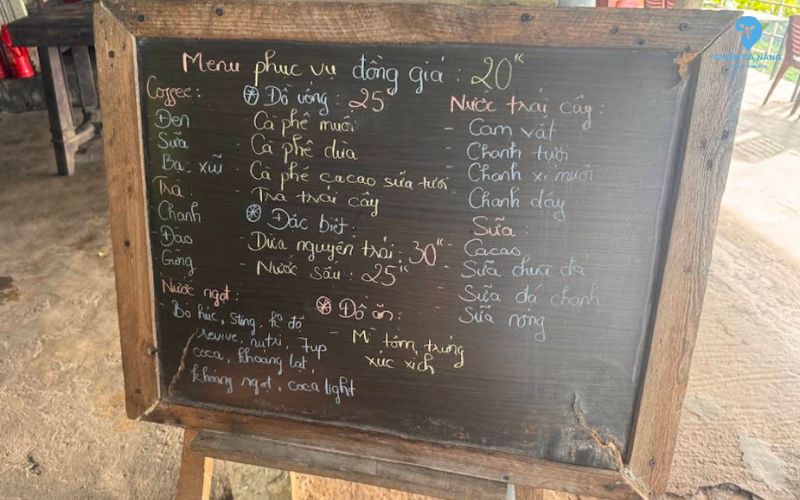 Menu phục vụ đồng giá : 20K
Coffee :
Đen
Sữa
Bạc xỉu
Trà
Chanh
Đào
Gừng
Nước ngọt :
- Bò húc, Sting, k đỏ
revive, nutri, 7up
coca, khoáng lạt,
khoáng ngọt, coca light
Đồ uống : 25K
- Cà phê muối
- Cà phê dừa
- Cà phê cacao sữa tươi
- Trà trái cây
Đặc biệt :
- Dừa nguyên trái : 30K
- Nước sấu : 25K
Đồ ăn :
- Mì tôm, trứng
xúc xích
Nước trái cây :
- Cam vắt
- Chanh tươi
- Chanh xí muội
- Chanh dây
Sữa :
- Cacao
- Sữa chua đá
- Sữa đá chanh
- Sữa nóng
GHIỀN ĐÀ NẴNG